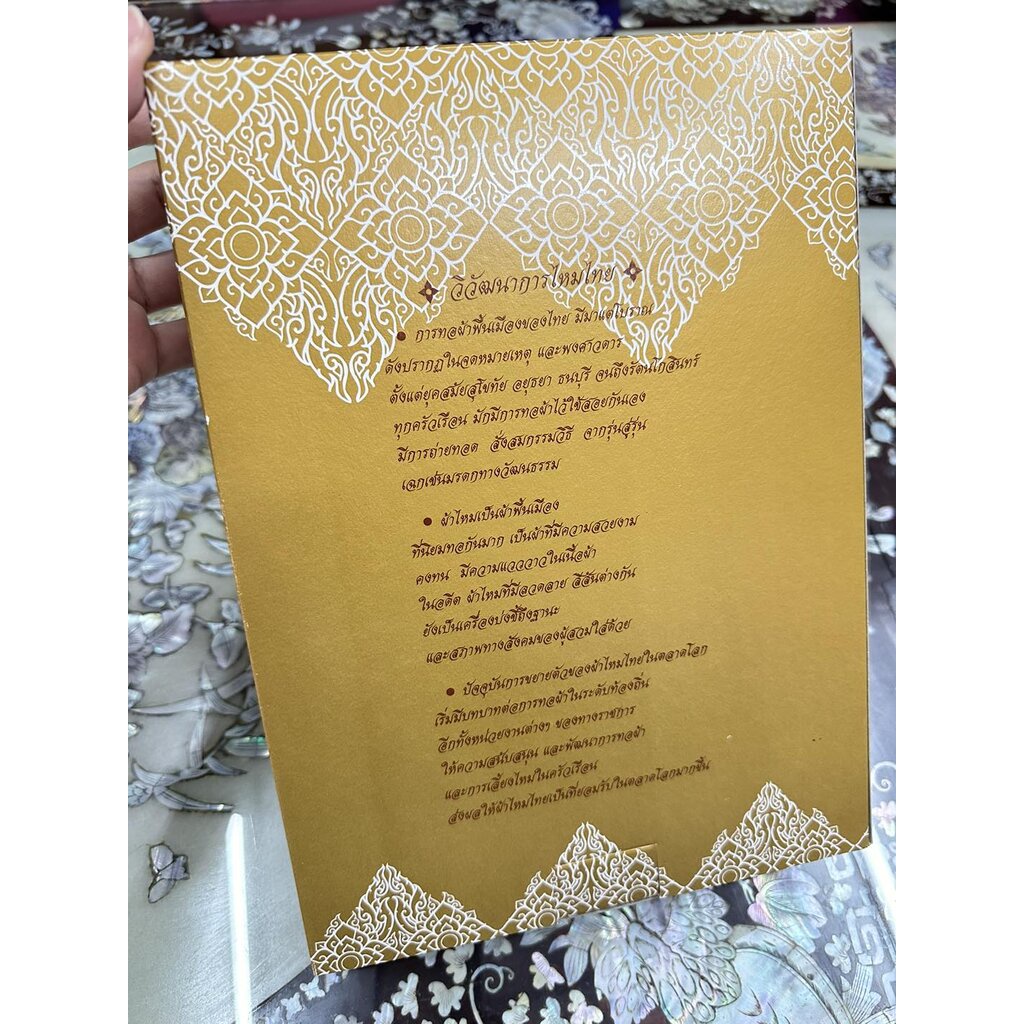 วิวัฒนาการไหมไทย
• การทอผ้าพื้นเมืองของไทย มีมาแต่โบราณ
ดังปรากฏในจดหมายเหตุ และพงศาวดาร
ตั้งแต่ยุคสมัยสุโขทัย อยุธยา ธนบุรี จนถึงรัตนโกสินทร์
ทุกครัวเรือน มักมีการทอผ้าไว้ใช้สอยกันเอง
มีการถ่ายทอด สั่งสมกรรมวิธี จากรุ่นสู่รุ่น
เฉกเช่นมรดกทางวัฒนธรรม
• ผ้าไหมเป็นผ้าพื้นเมือง
ที่นิยมทอกันมาก เป็นผ้าที่มีความสวยงาม
คงทน มีความแวววาวในเนื้อผ้า
ในอดีต ผ้าไหมที่มีลวดลาย สีสันต่างกัน
ยังเป็นเครื่องบ่งชี้ถึงฐานะ
และสภาพทางสังคมของผู้สวมใส่ด้วย
• ปัจจุบันการขยายตัวของผ้าไหมไทยในตลาดโลก
เริ่มมีบทบาทต่อการทอผ้าในระดับท้องถิ่น
อีกทั้งหน่วยงานต่างๆ ของทางราชการ
ให้ความสนับสนุน และพัฒนาการทอผ้า
และการเลี้ยงไหมในครัวเรือน
ส่งผลให้ผ้าไหมไทยเป็นที่ยอมรับในตลาดโลกมากขึ้น